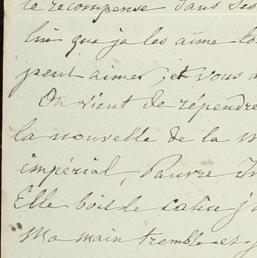 le récompense dans ses
lui que je les aime
peut aimer, et vous
On vient de répendre
la nouvelle de la
impérial, Pauvre
Elle bois le calice
Ma main tremble et